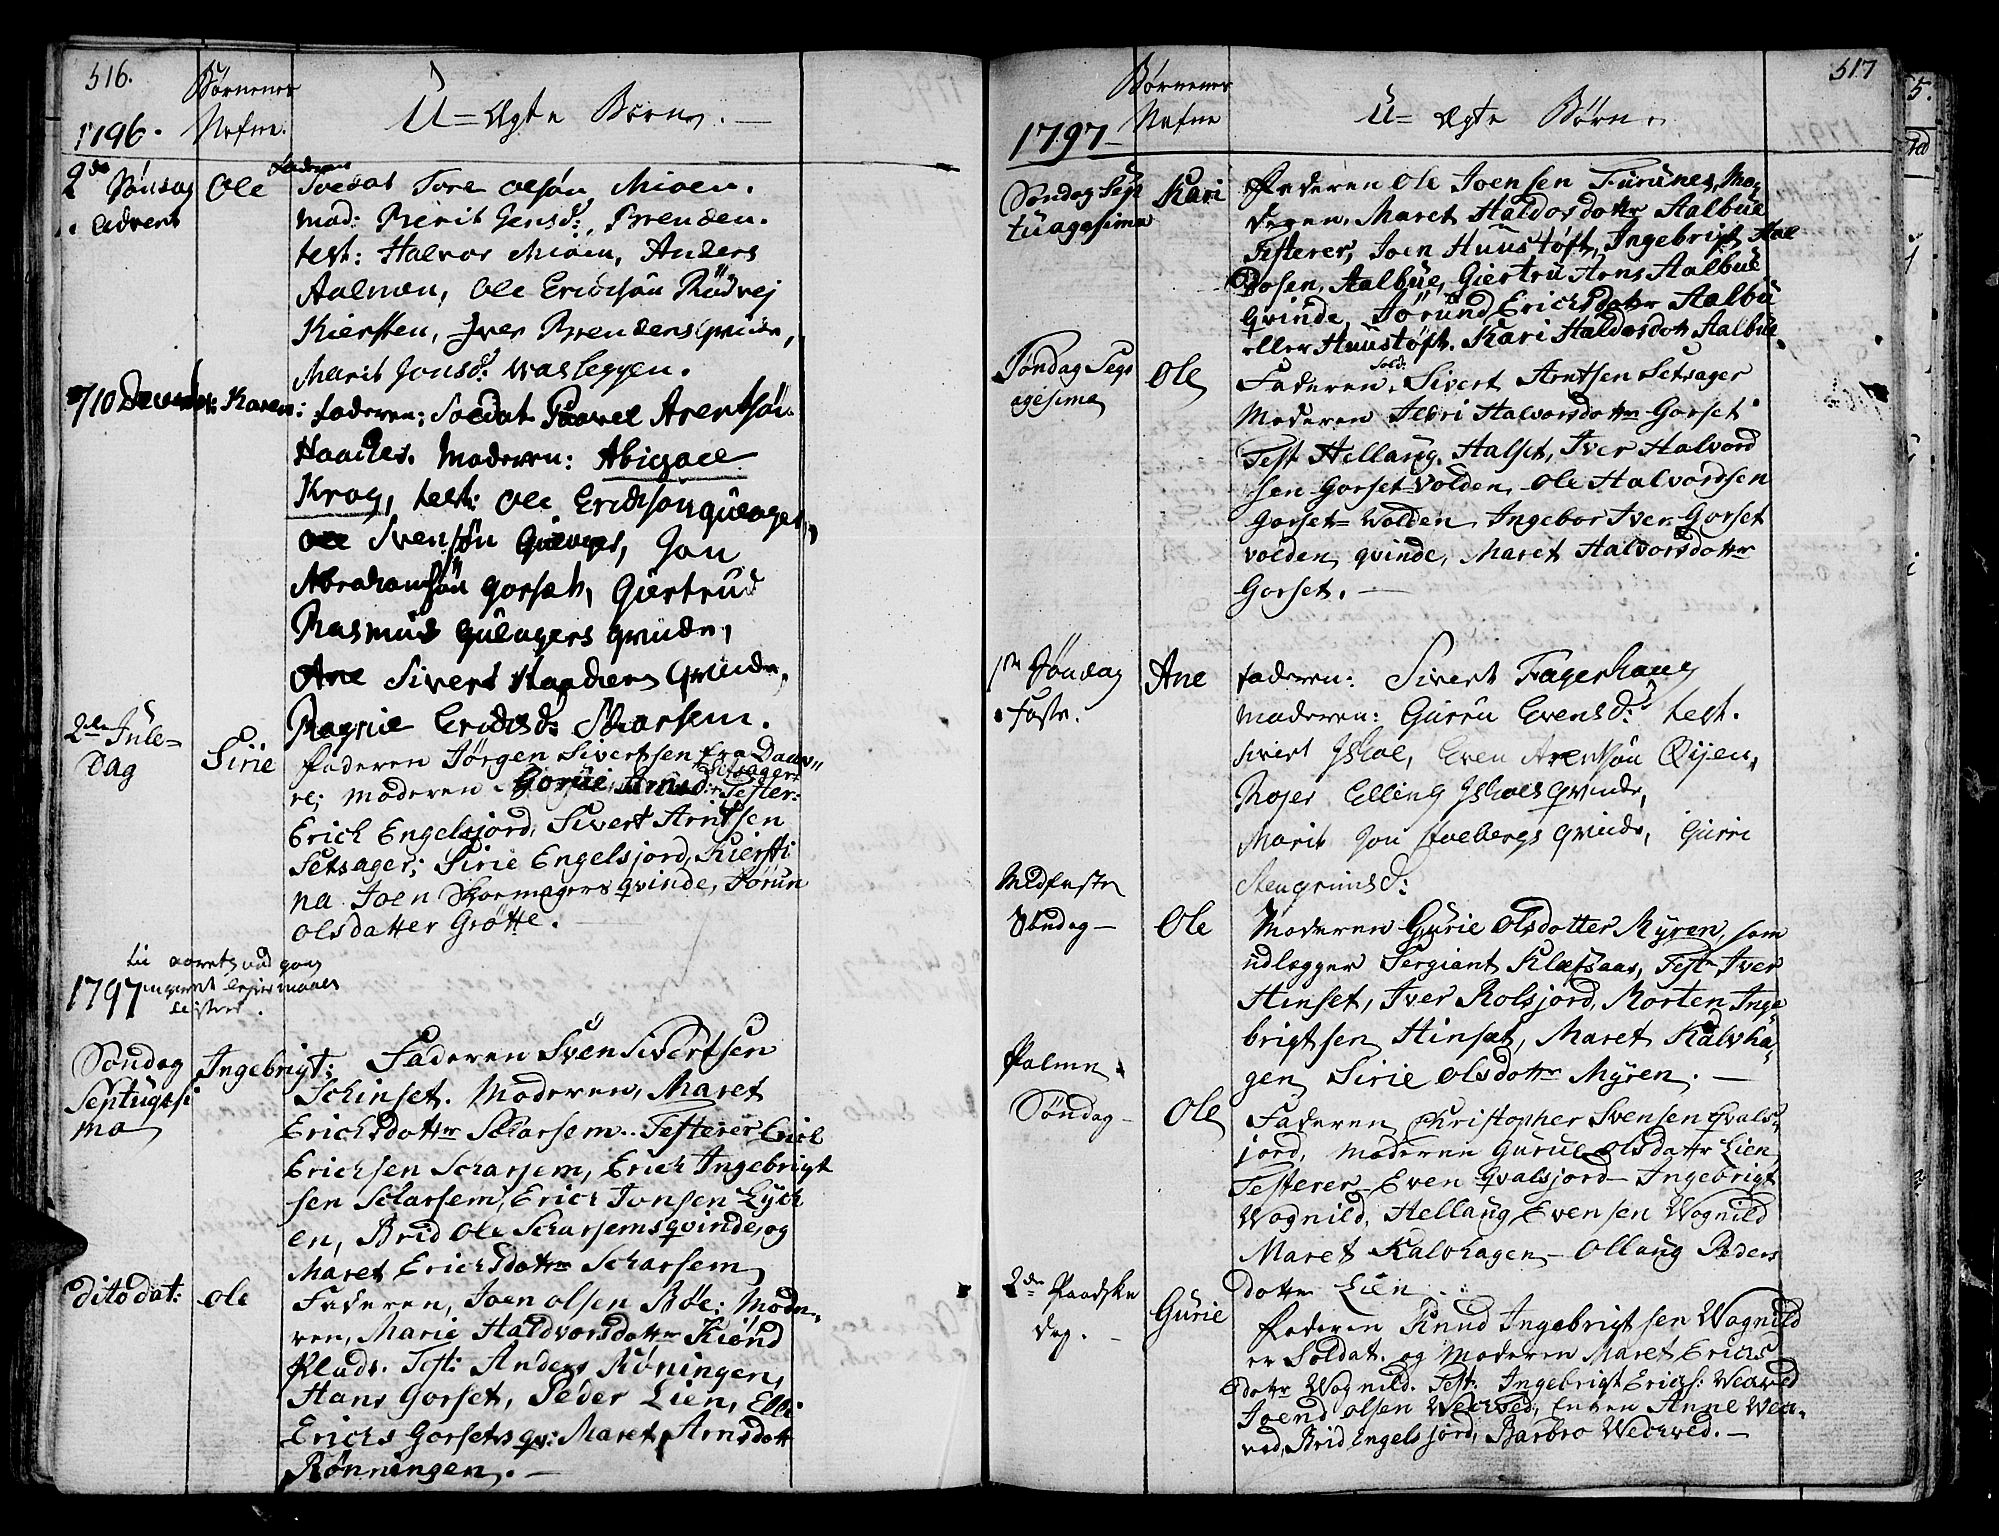 516.
Børnenes
Nafne.
U=Ægte Børn.
1796.
2de Søndag
i Advent
Ole
Faderen
Soldat Tore Olsøn Mioen.
Mod: Berit Jensd: Brenden.
test: Halvor Mioen, Anders
Aalmen, Ole Erichsøn Rødvej
Kiersten, Iver Brendens Qvinde,
Marit Jonsd: Wasleggen.
10 December
Karen:
faderen: Soldat Paavel Arentsøn
Haaches. Moderen: Abigael
Krog, test: Ole Erichsøn gulager,
Ole Svensøn Gulager, Jon
Abrahamsøn gorset, Giertrud
Rasmus Gulagers qvinde,
Ane Sivert Haachens Qvinde,
Ragnie Erichsd: Skarsem.
2den Jule=
Dag
Sirie
Faderen Jørgen Sivertsen fra Daav"
re; Moderen Gorüe Arnsd: Setsager: Tester:
Erich Engelsjord, Sivert Arntsen
Setsager; Sirie Engelsjord, Kiersti
na Joen Skomagers qvinde, Jørun
Olsdatter Grøtte.
1797
Søndag
Septuagesi
ma
Ingebrigt:
Faderen Sven Sivertsen
Schinset. Moderen, Maret
Erichsdotter Skarsem. Testerer Erich
Erichsen Scharsem, Erich Ingebrigt
sen Scharsem, Erich Jonsen Lych
en, Brid Ole Scharsems qvinde, og
Maret Erichsdotter Scharsem
dito dat:
Ole
Faderen, Joen Olsen Bøe: Mode-
ren, Marie Haldvorsdotter Kiønd
Plads. Test: Anders Røningen,
Hans Gorset, Peder Lien, Elli
Erichs Gorsets qv: Maret Arnsdott
Rønningen.
517
Børnenes
Nafne
U= Ægte Børn
1797
Søndag Sep
tuagesima
Kari
Faderen Ole Joensen Furunes, Mo
deren, Maret Haldorsdotter Aalbue
Testerer, Joen Huustøft, Ingebrigt Hal
dosen, Aalbue, Giertru Arns Aalbue
Qvinde, Jørund Erichsdotter Aalbu
eller Huustøft. Kari Haldorsdott Aalbue.
Søndag Sexs
agesima
Ole
Faderen, Sold. Sivert Arntsen Setsager
Moderen Ildri Halvorsdotter Gorset
Test Hellaug Halset, Iver Halvord
sen Gorset=Volden, Ole Halvordsen
Gorset= Wolden, Ingebor Iver Gorset
volden qvinde, Maret Halvorsdotter
Gorset.
1ste Søndag
i Faste.
Ane
faderen: Sivert Fagerhaug
moderen: Guren Evensd: test.
Sivert Ishoel, Even Arentsøn Qvjen,
Rojer Elling Ishoels qvinde,
Marit Jon Stolbergs qvinde, Gurri
Stengrimsd:
Midfaste
Søndag
Ole
Moderen Gurie Olsdotter Myren, som
udlegger Sergiant Klæfsaas, Test: Iver
Hinset, Iver Rolsjord, Morten Inge
brigtsen Hinset, Maret Kalvha-
gen Sirie Olsdotter Myren.
Palme
Søndag
Ole
Faderen Christopher Svensen Qvals-
jord, Moderen Gurue Olsdatter Lien
Testerer Even Qvalsjord Ingebrigt
Wognild, Hellaug Evensen Wognild
Maret Kalvhagen Ollaug Peders
dotter Lien
2den Paaske
Dag.
Gurie
Faderen Knud Ingebrigtsen Wognild
er Soldat. og Moderen Maret Erichs
dotter Wognild. Test: Ingebrigt Erichs: Weaved
Joend Olsen Weaved, Enken Anne Wea-
ved, Brid Engelsjord, Barbro Weaved.